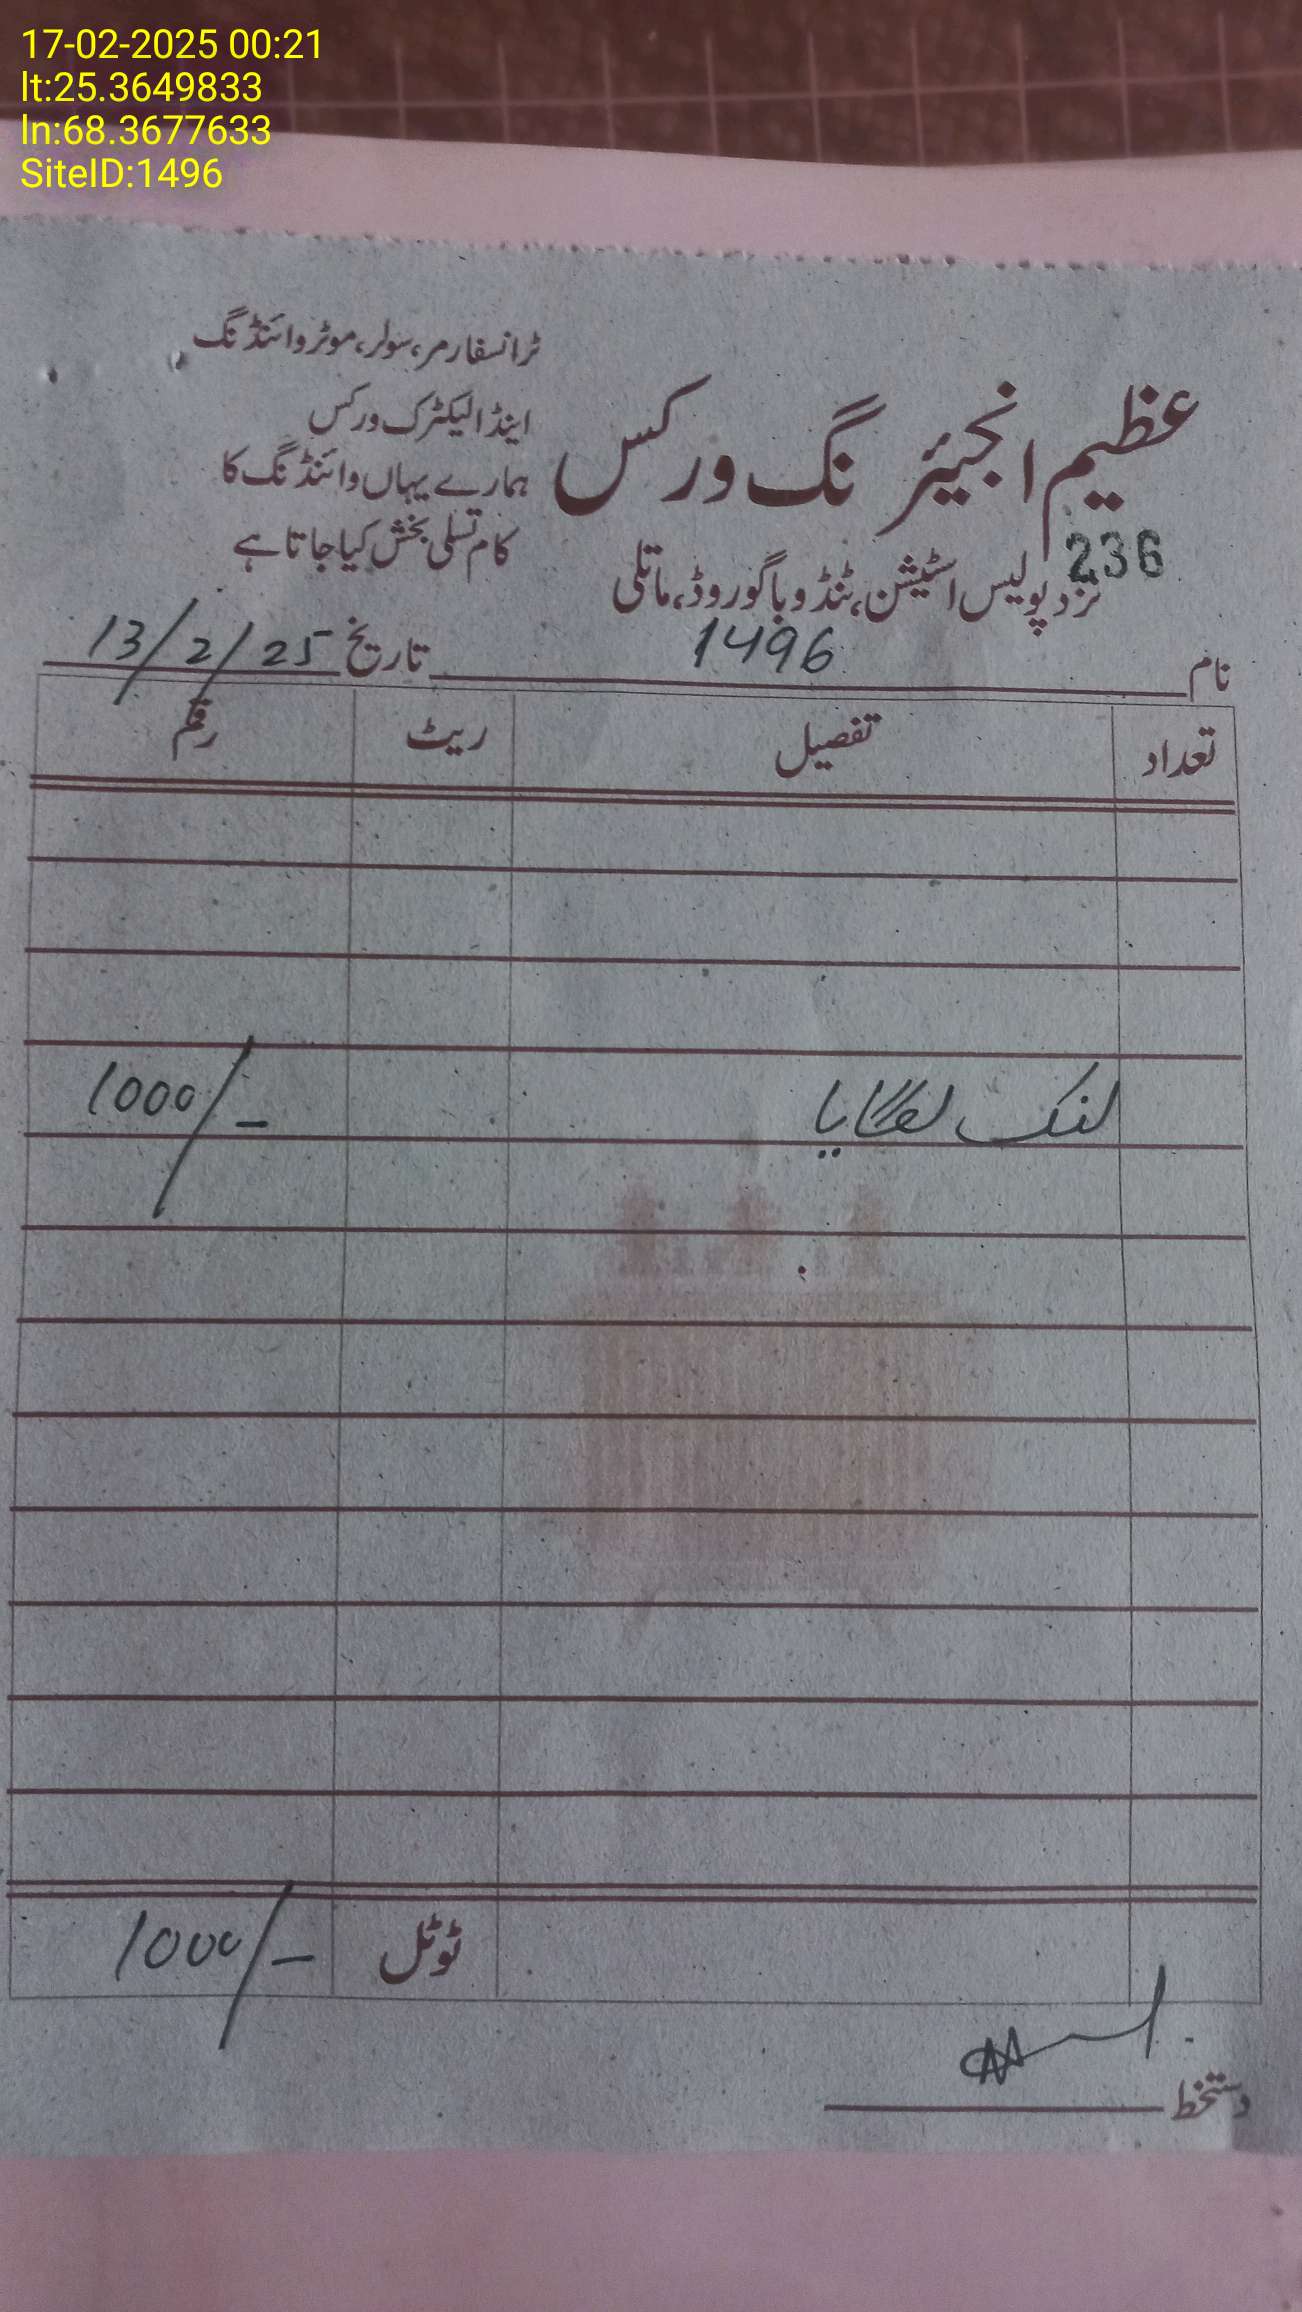 17-02-2025 00:21
lt:25.3649833
ln:68.3677633
SiteID:1496
عظیم انجیئرنگ ورکس
ٹرانسفارمر، سولر، موٹر وائنڈنگ
اینڈ الیکٹرک ورکس
ہمارے یہاں وائنڈنگ کا
کام تسلی بخش کیا جاتا ہے
236
نزد پولیس اسٹیشن، ٹنڈو باگو روڈ، ماتلی
نام 1496 تاریخ 13/2/25
تعداد تفصیل ریٹ رقم
لنک لگایا 1000/-
ٹوٹل 1000/-
دستخط